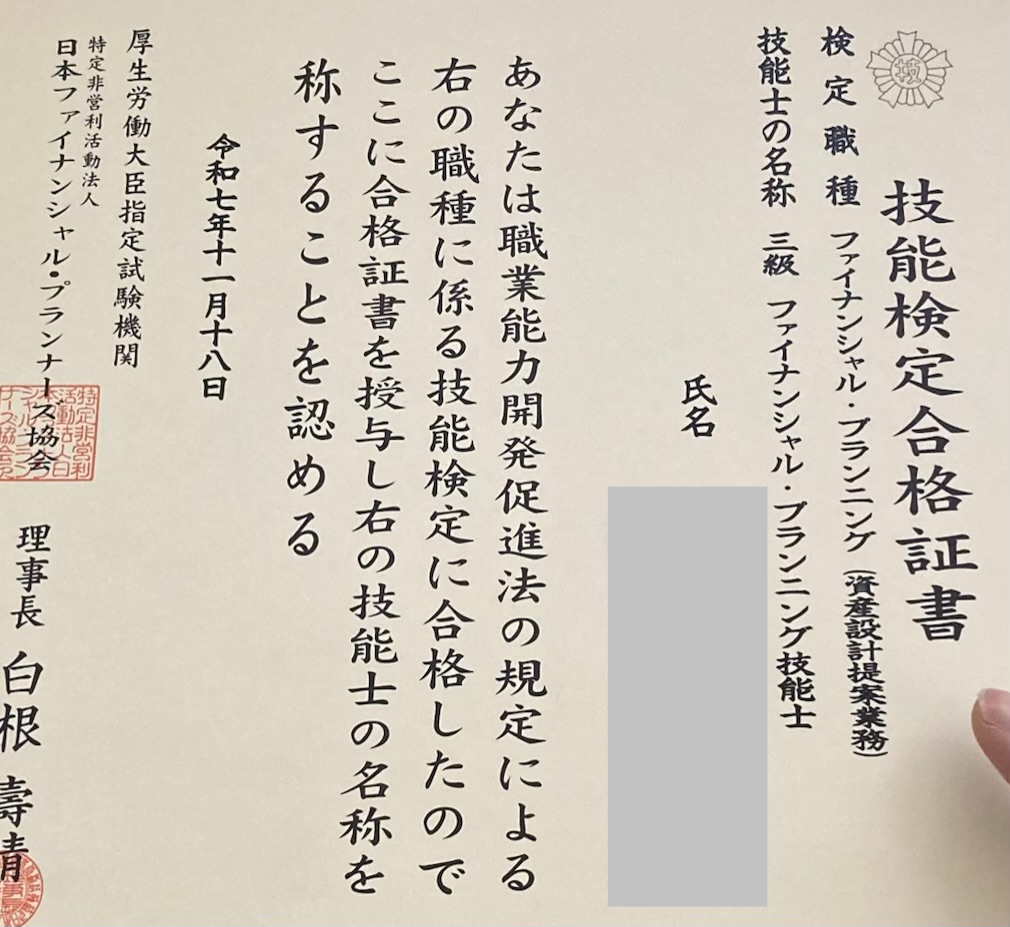 技
技能検定合格証書
検定職種 ファイナンシャル・プランニング(資産設計提案業務)
技能士の名称 三級 ファイナンシャル・プランニング技能士
氏名
あなたは職業能力開発促進法の規定による
右の職種に係る技能検定に合格したので
ここに合格証書を授与し右の技能士の名称を
称することを認める
令和七年十一月十八日
厚生労働大臣指定試験機関
特定非営利活動法人
日本ファイナンシャル・プランナーズ協会
理事長 白根壽晴